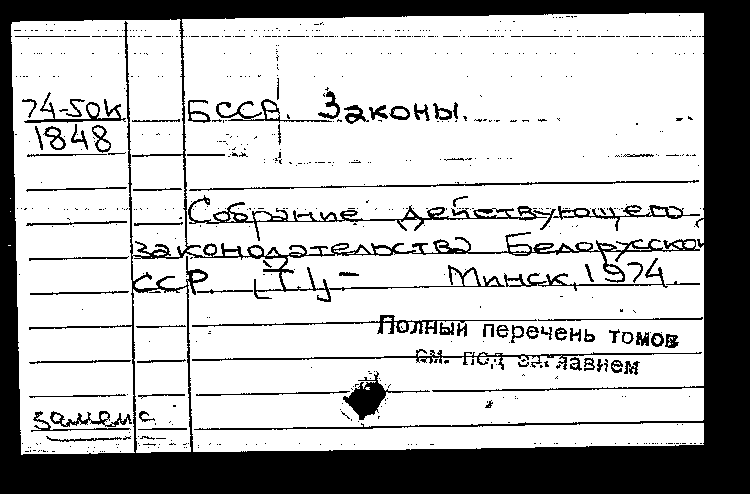 74-50к
1848
БССР. Законы.
Собрание действующего
законодательства Белорусской
ССР. [Т. 1]. – Минск, 1974.
Полный перечень томов
см. под заглавием
замена